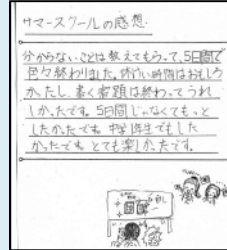 サマースクールの感想
分からないことは教えてもらって、5日間で
色々終わりました。休けい時間はおもしろ
かったし、書く宿題は終わってうれ
しかったです。5日間じゃなくてもっと
したかったです。中学1年生でもした
かったです。とても楽しかったです。